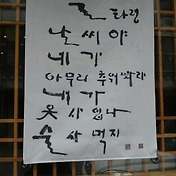 타령
날씨야
네가
아무리 추워봐라
내가
옷 사입나
술 사먹지